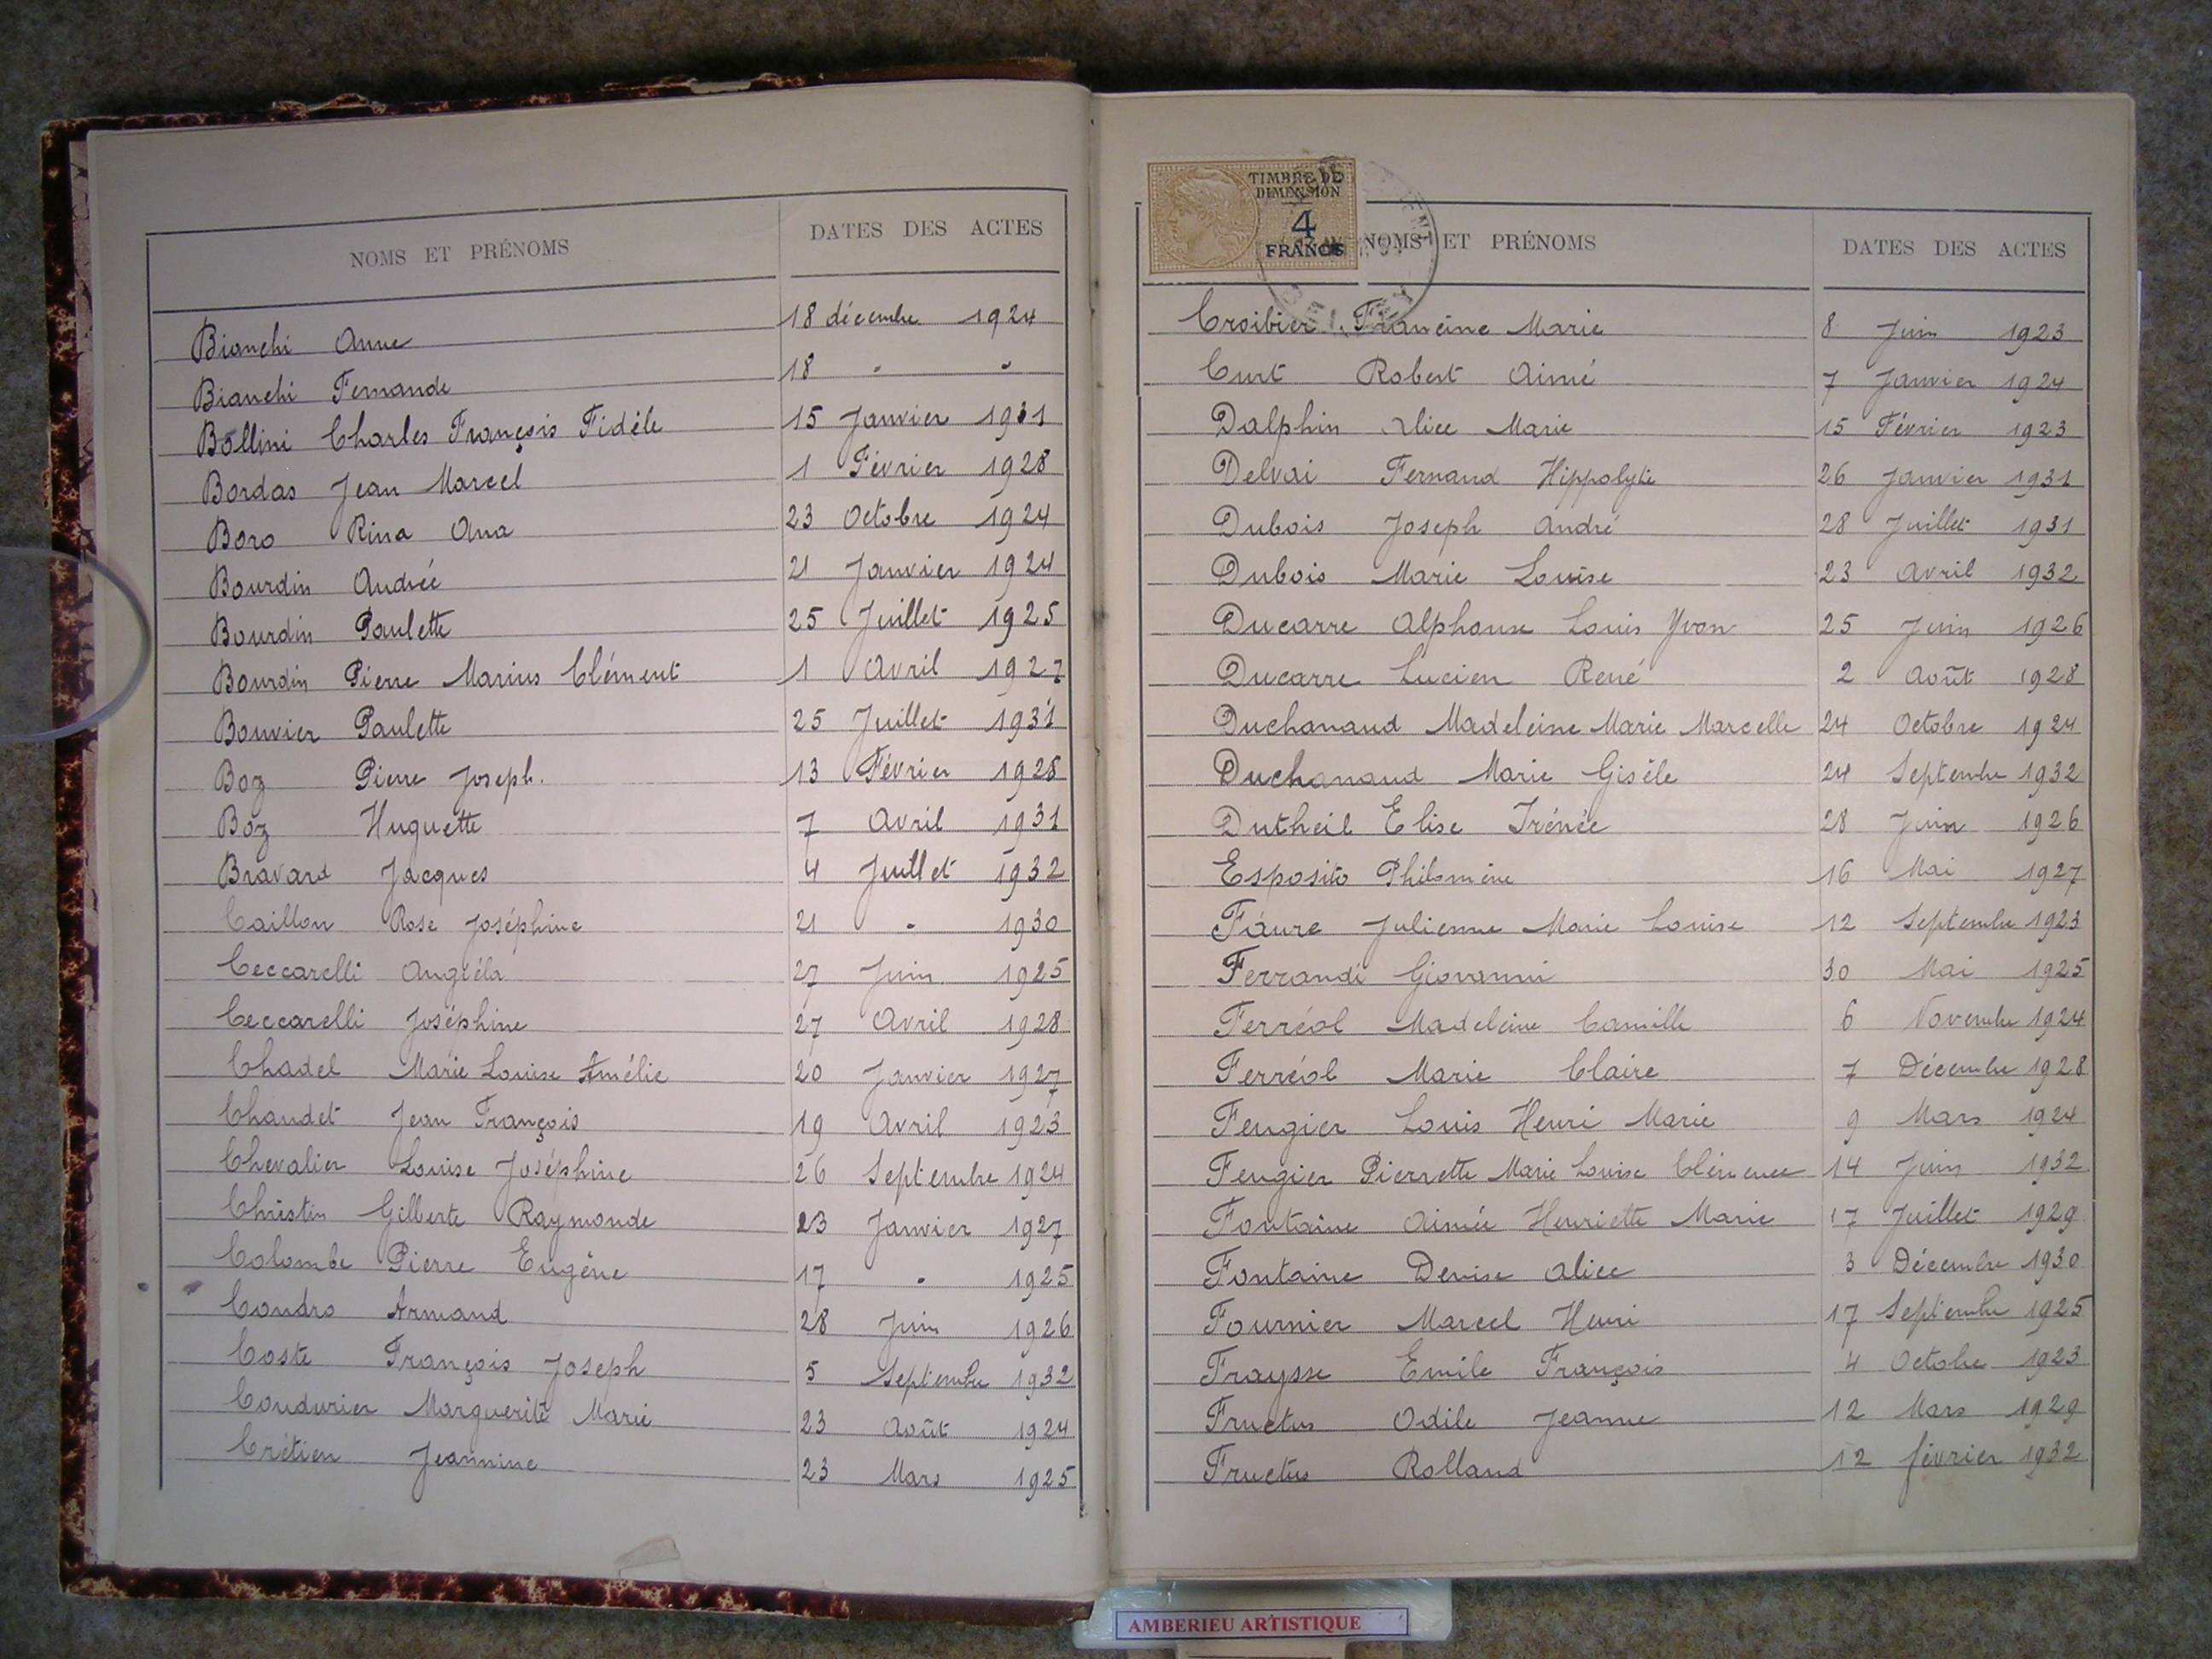 NOMS ET PRÉNOMS DATES DES ACTES
Bianchi Anne 18 décembre 1924
Bianchi Fernande 18 " "
Bollini Charles François Fidèle 15 Janvier 1931
Bordas Jean Marcel 1 Février 1928
Boro Rina Ana 23 Octobre 1924
Bourdin Andrée 21 Janvier 1924
Bourdin Paulette 25 Juillet 1925
Bourdin Pierre Marius Clément 1 Avril 1927
Bouvier Paulette 25 Juillet 1931
Boz Pierre Joseph. 13 Février 1928
Boz Huguette 7 Avril 1931
Bravard Jacques 4 Juillet 1932
Caillon Rose Joséphine 21 " 1930
Ceccarelli Angiéla 27 Juin 1925
Ceccarelli Joséphine 27 Avril 1928
Chadel Marie Louise Amélie 20 Janvier 1927
Chaudet Jean François 19 Avril 1923
Chevalier Louise Joséphine 26 Septembre 1924
Christin Gilberte Raymonde 23 Janvier 1927
Colombe Pierre Eugène 17 " 1925
Condro Armand 28 Juin 1926
Coste François Joseph 5 Septembre 1932
Coudurier Marguerite Marie 23 Août 1924
Crétien Jeannine 23 Mars 1925
TIMBRE DE
DIMENSION
4
FRANCS
NOMS ET PRÉNOMS DATES DES ACTES
Croibier Francine Marie 8 Juin 1923
Curt Robert Aimé 7 Janvier 1924
Dalphin Alice Marie 15 Février 1923
Delvai Fernand Hippolyte 26 Janvier 1931
Dubois Joseph André 28 Juillet 1931
Dubois Marie Louise 23 Avril 1932
Ducarre Alphonse Louis Yvon 25 Juin 1926
Ducarre Lucien René 2 Août 1928
Duchanaud Madeleine Marie Marcelle 24 Octobre 1924
Duchanaud Marie Gisèle 24 Septembre 1932
Dutheil Elise Irénée 28 Juin 1926
Esposito Philomène 16 Mai 1927
Faure Julienne Marie Louise 12 Septembre 1923
Ferrandi Giovanni 30 Mai 1925
Ferréol Madeleine Camille 6 Novembre 1924
Ferréol Marie Claire 7 Décembre 1928
Feugier Louis Henri Marie 9 Mars 1924
Feugier Pierrette Marie Louise Clémence 14 Juin 1932
Fontaine Aimée Henriette Marie 17 Juillet 1929
Fontaine Denise Alice 3 Décembre 1930
Fournier Marcel Henri 17 Septembre 1925
Fraysse Emile François 4 Octobre 1923
Fructus Odile Jeanne 12 Mars 1929
Fructus Rolland 12 février 1932
AMBERIEU ARTISTIQUE